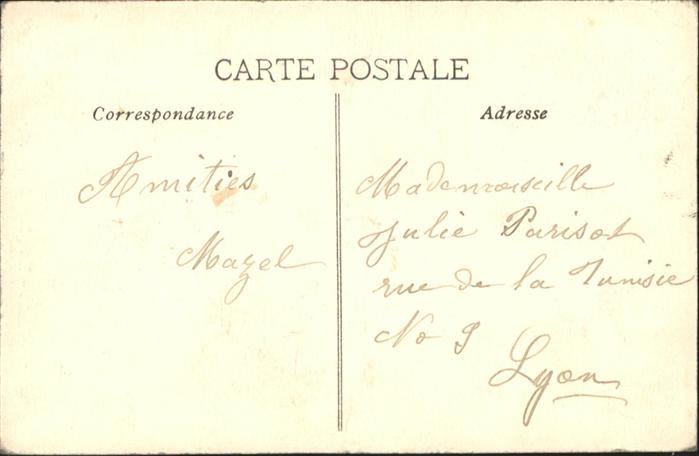 CARTE POSTALE
Correspondance
Amitiés
Mazel
Adresse
Mademoiselle
Julie Parisot
rue de la Tunisie
No 9
Lyon